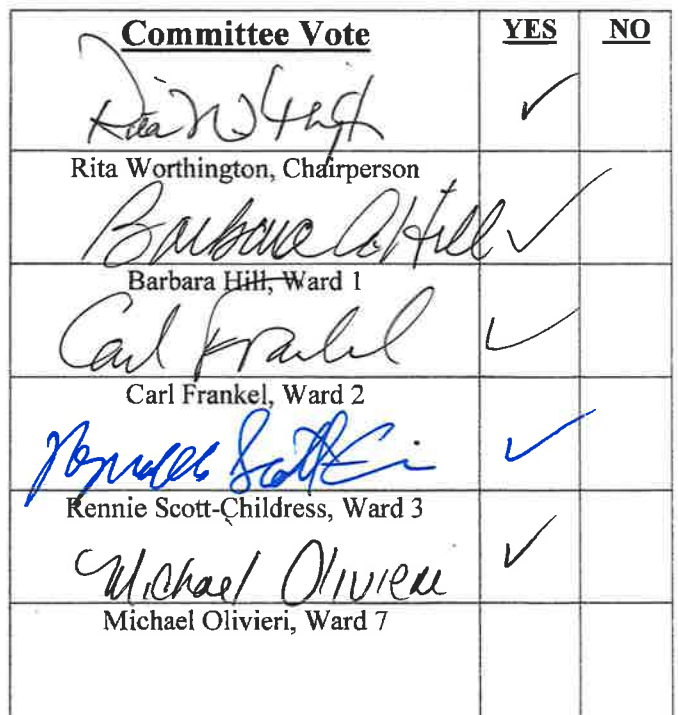 Committee Vote YES NO
Rita Worthington ✓
Rita Worthington, Chairperson
Barbara A. Hill ✓
Barbara Hill, Ward 1
Carl Frankel ✓
Carl Frankel, Ward 2
✓
Rennie Scott-Childress, Ward 3
Michael Olivieri ✓
Michael Olivieri, Ward 7